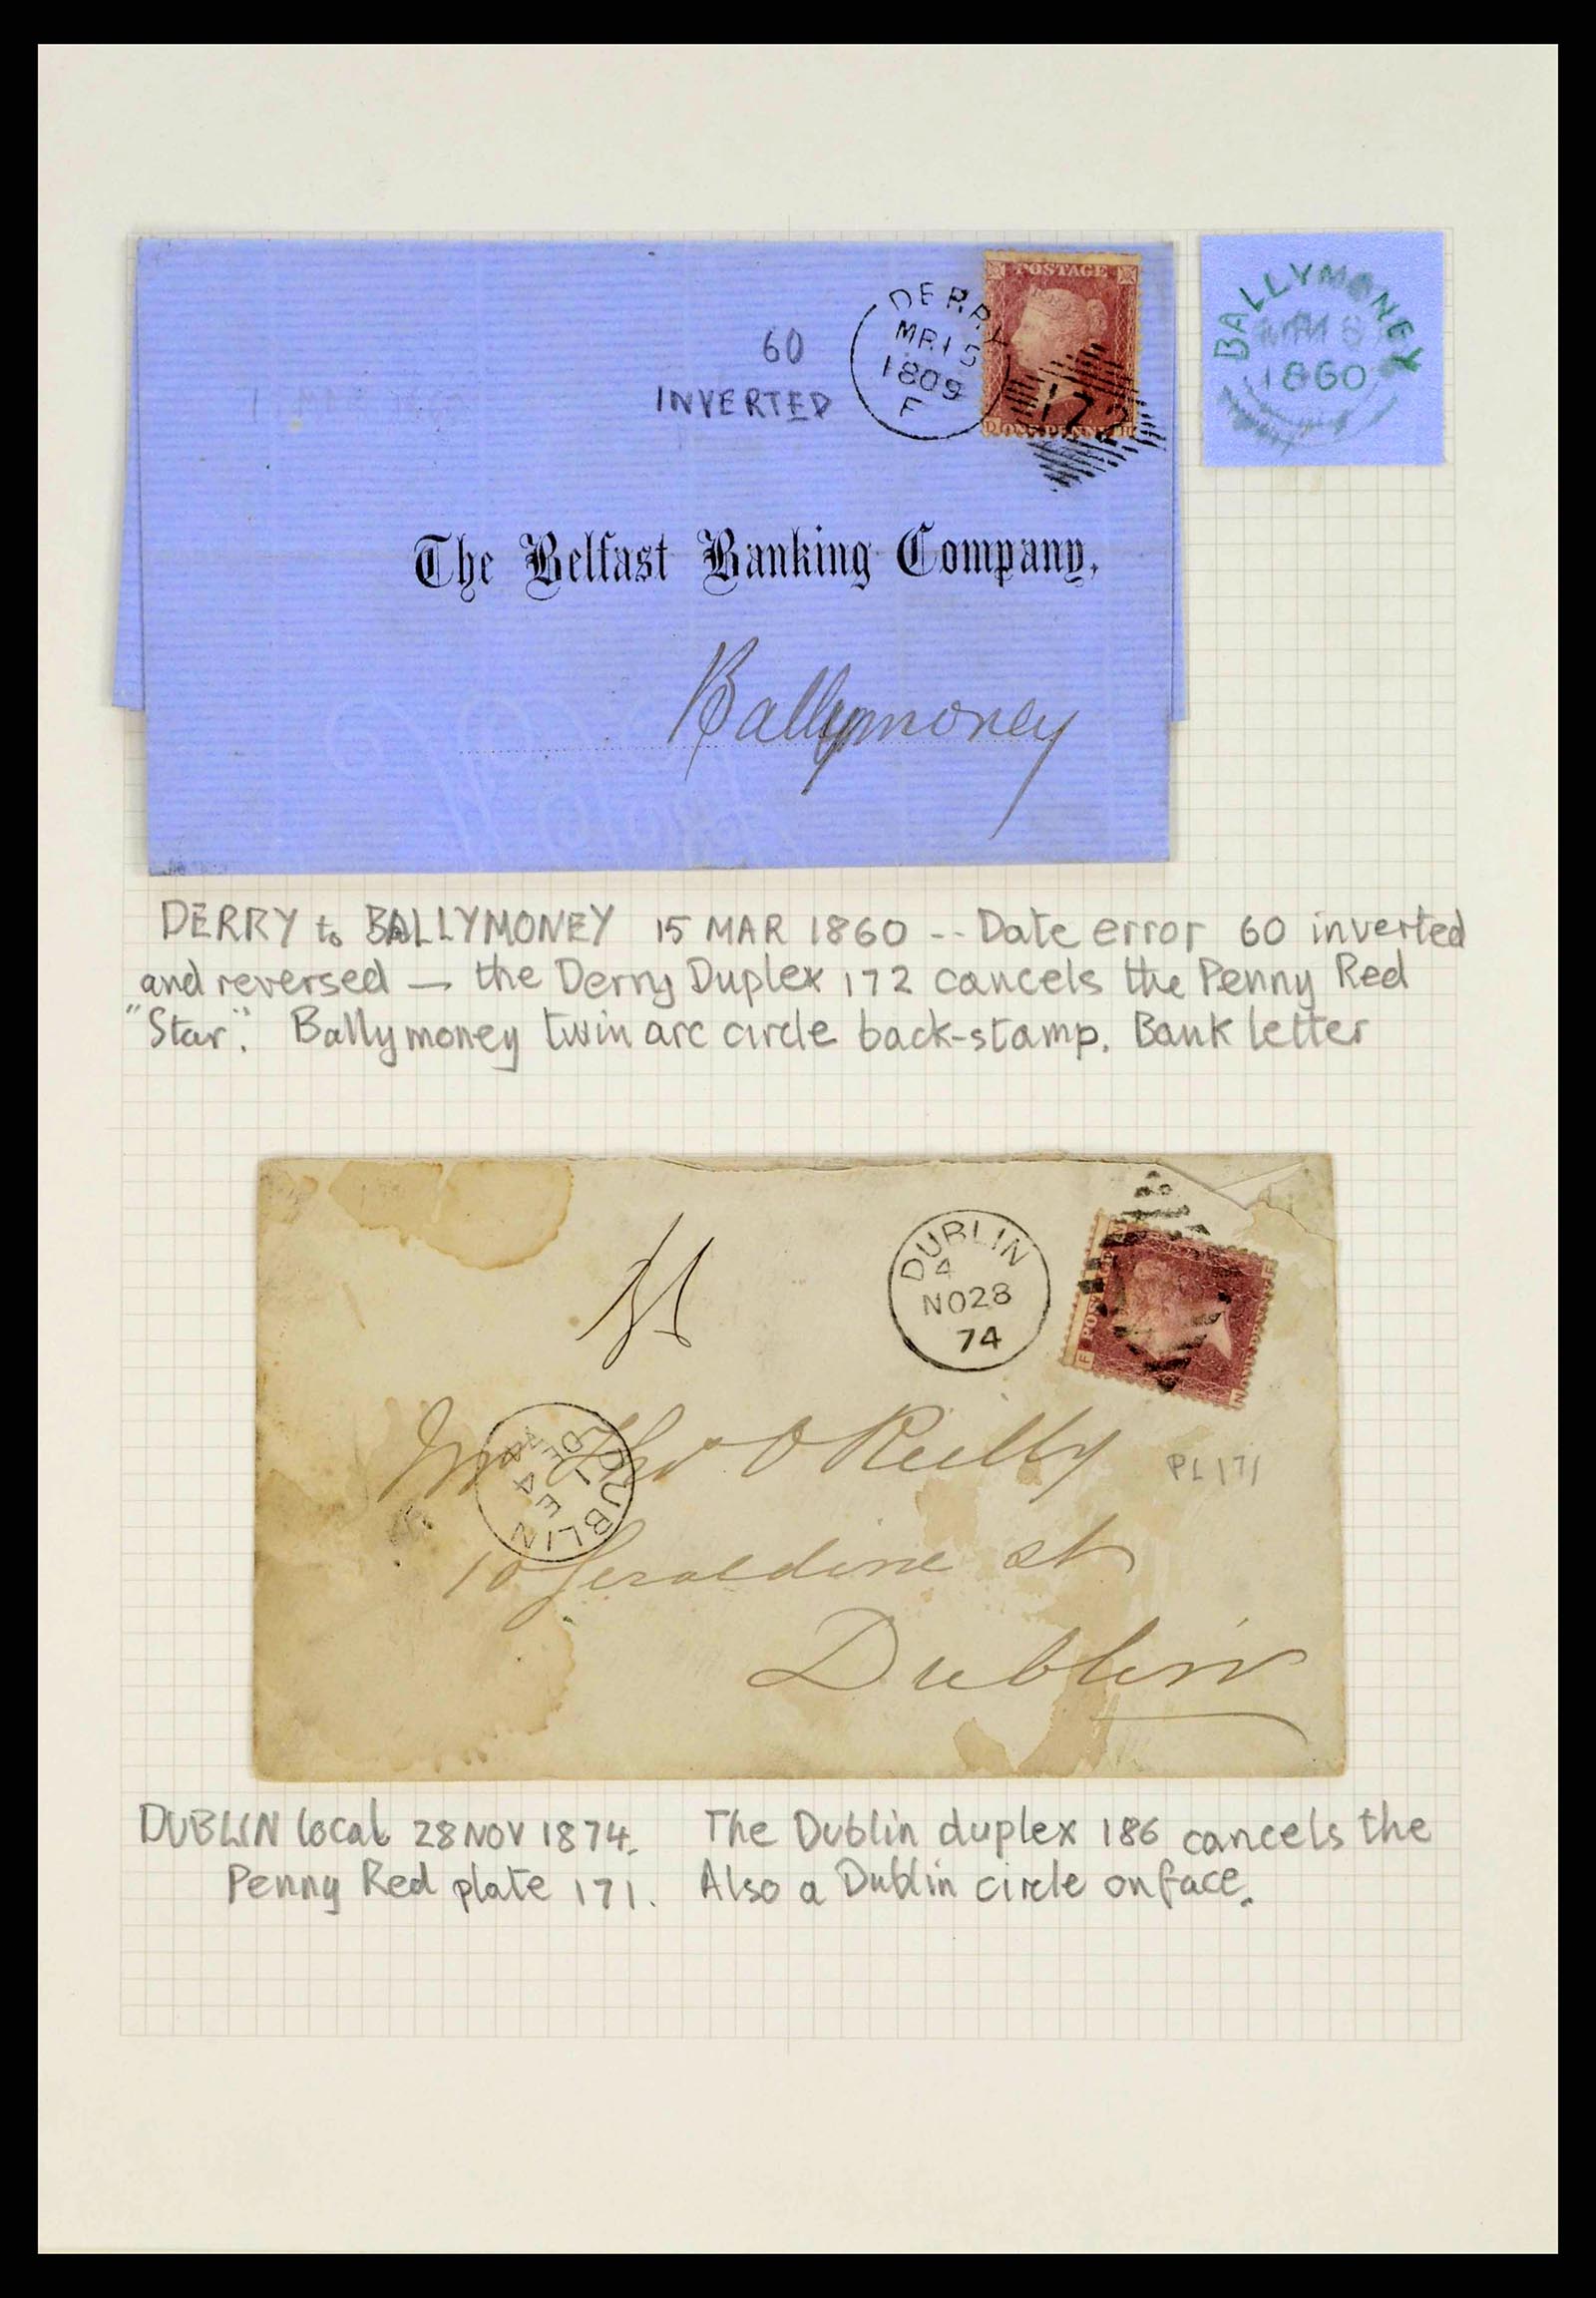 60
INVERTED
DERRY
MR15
1809
F
POSTAGE
ONE PENNY
172
BALLYMONEY
1860
The Belfast Banking Company,
Ballymoney
DERRY to BALLYMONEY 15 MAR 1860 -- Date error 60 inverted
and reversed — the Derry Duplex 172 cancels the Penny Red
"Star". Ballymoney twin arc circle back-stamp. Bank letter
DUBLIN
4
NO28
74
DUBLIN
E4
DE 1
74
O'Reilly
PL 171
10 Geraldine St
Dublin
DUBLIN local 28 NOV 1874. The Dublin duplex 186 cancels the
Penny Red plate 171. Also a Dublin circle on face.